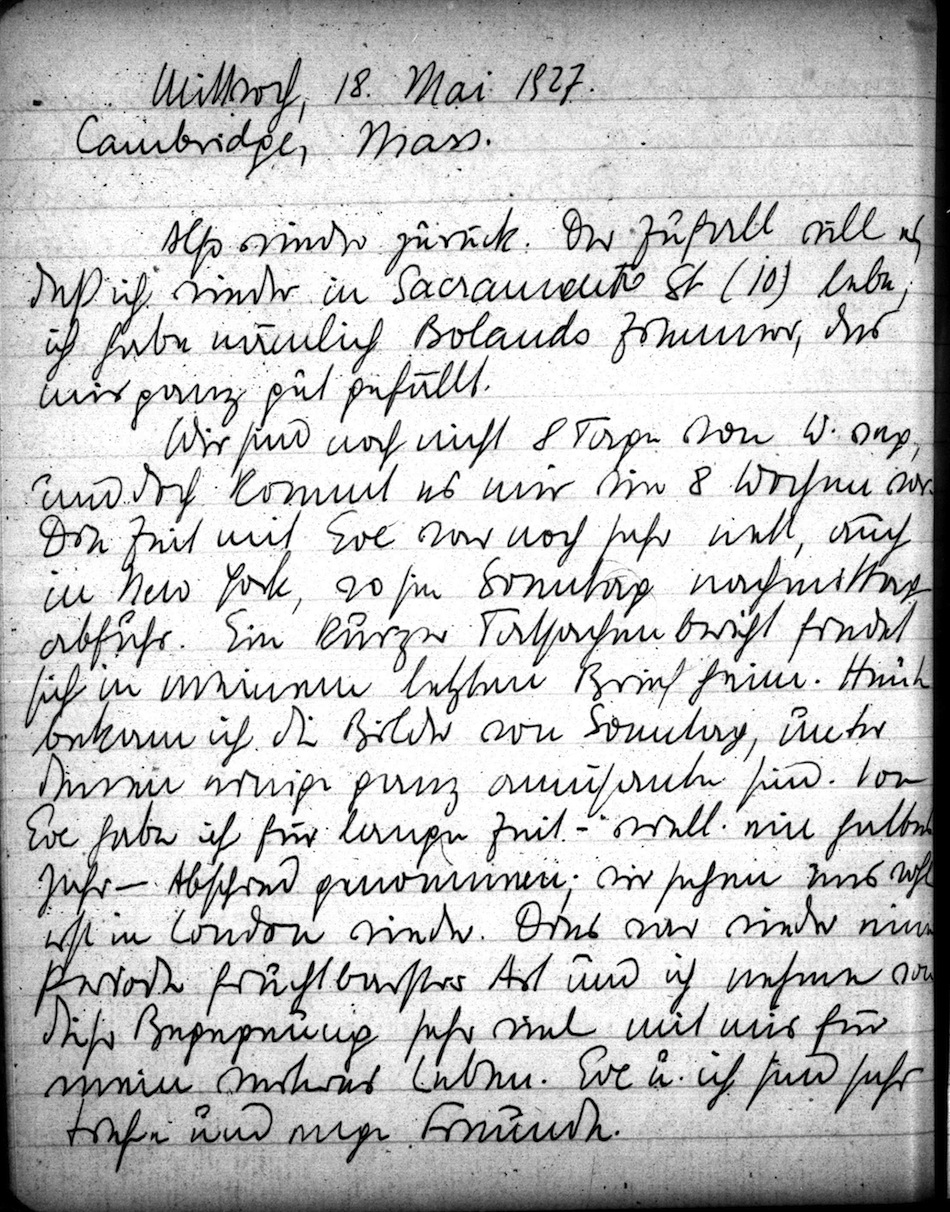 Mittwoch, 18. Mai 1927.
Cambridge, Mass.
Also wieder zurück. Der Zufall will es,
daß ich wieder in Sacramento St (10) lebe,
ich habe nämlich Bolands Zimmer, das
mir ganz gut gefällt.
Wir sind noch nicht 8 Tage von W. weg,
und doch kommt es mir wie 8 Wochen vor.
Die Zeit mit Eve war noch sehr nett, auch
in New York, wo sie Sonntag nachmittag
abfuhr. Ein kurzer Tatsachenbericht findet
sich in meinem letzten Brief heim. Heute
bekam ich die Bilder von Sonntag, unter
denen einige ganz amüsante sind. Von
Eve habe ich für lange Zeit – viell. ein halbes
Jahr – Abschied genommen; wir sehen uns wohl
erst in London wieder. Dies war wieder eine
Periode fruchtbarster Art und ich nehme von
dieser Begegnung sehr viel mit mir für
mein weiteres Leben. Eve u. ich sind sehr
tiefe und enge Freunde.